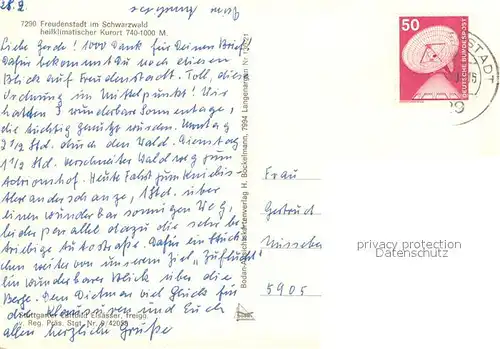 28.2.
7290 Freudenstadt im Schwarzwald
heilklimatischer Kurort 740-1000 M.
Liebe Gerda! 1000 Dank für Deinen Brief.
Dafür bekommst Du noch diesen
Blick auf Freudenstadt. Toll, diese
Ordnung im Mittelpunkt! Wir
hatten 3 wunderbar Sonnentage,
die tüchtig genutzt wurden. Montag
2 Std. durch den Wald. Dienstag
1 1/2 Std. verschneiter Waldweg zum
Heute Fahrt zum Kniebis-
Alexanderschanze, 1 Std. über
einen wunderbar sonnigen Weg,
leider parallel dazu die sehr be-
triebige Autostraße. Dafür ein Stück-
chen weiter von unserem Ziel, "Zuflucht"
ein wunderbarer Blick über die
Berge. Dem Dietmar viel Glück für
die Klausuren und Euch
allen herzliche Grüße
Stuttgarter Luftbild Elsässer, freigg.
Reg. Präs. Stgt. Nr.
Bodan-Ansichtskartenverlag H. Bockelmann, 7994 Langenargen
50
DEUTSCHE BUNDESPOST
STADT
Frau
Gertrud
5905
privacy protection
Datenschutz